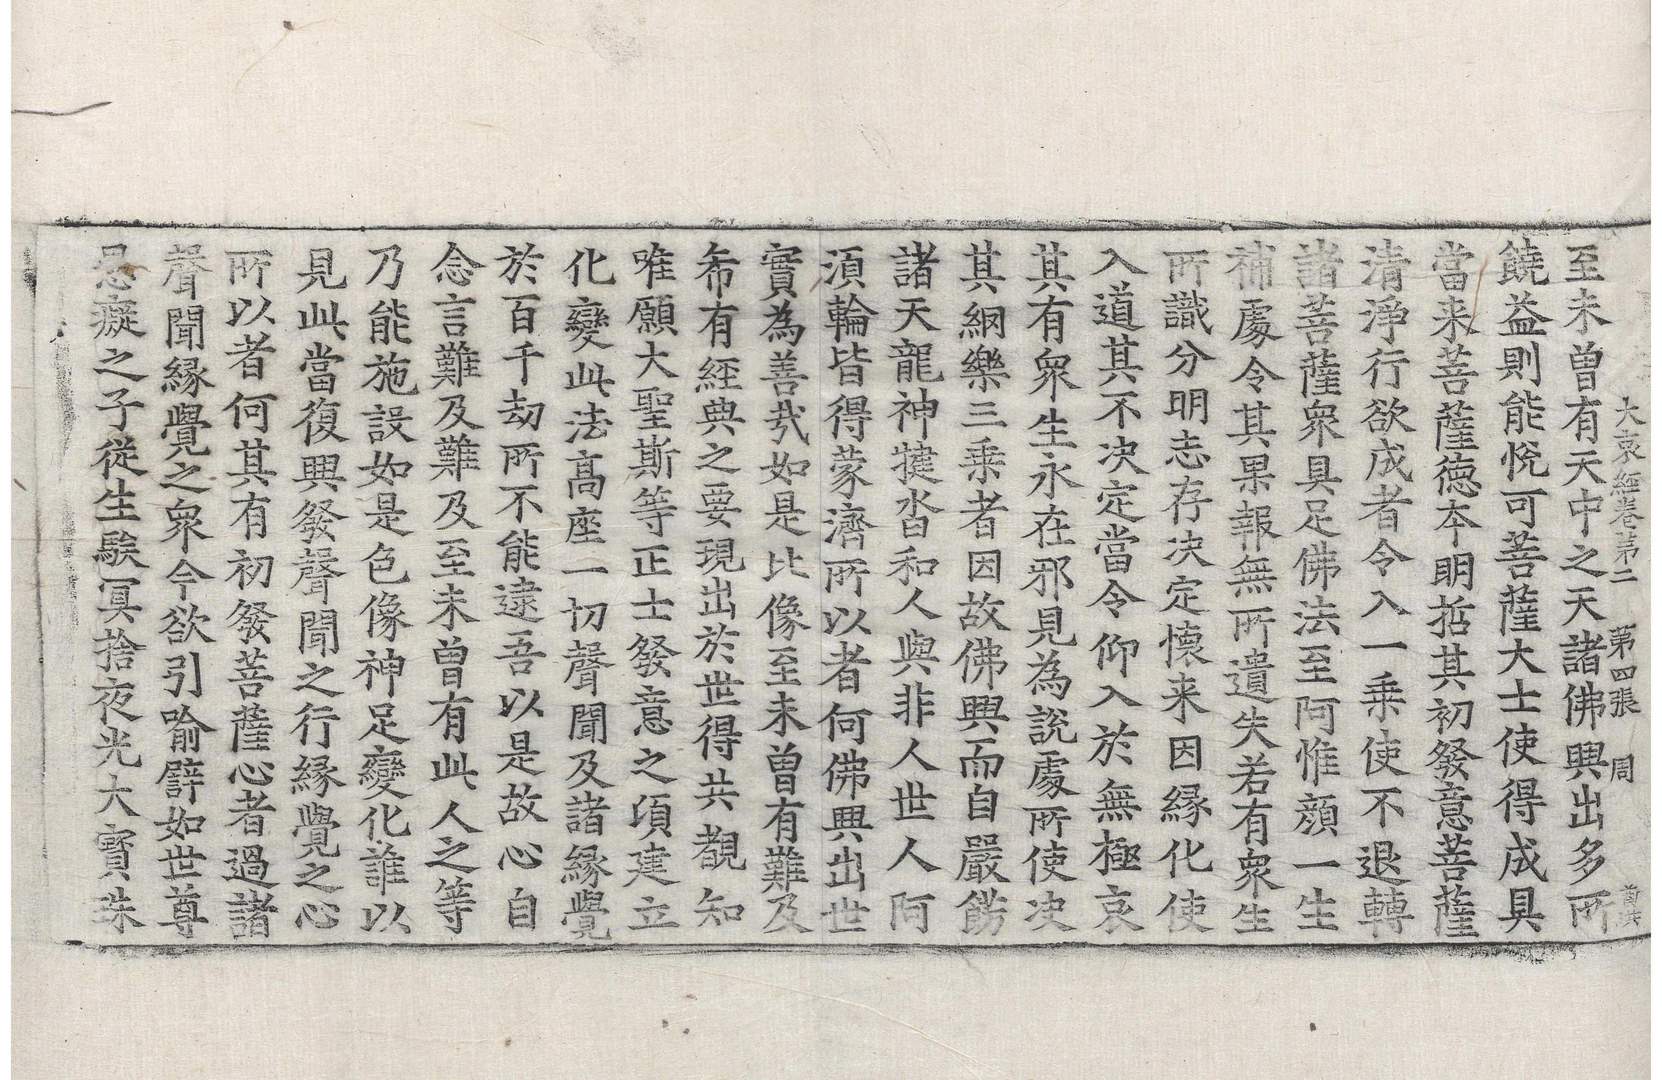 大哀經卷第二　第四張　周
至未曾有天中之天諸佛興出多所
饒益則能悅可菩薩大士使得成具
當来菩薩德本明哲其初發意菩薩
清淨行欲成者令入一乘使不退轉
諸菩薩衆具足佛法至阿惟顏一生
補處令其果報無所遺失若有衆生
所識分明志存决定懷来因緣化使
入道其不决定當令仰入於無極哀
其有衆生永在邪見為說處所使决
其網樂三乗者因故佛興而自嚴餝
諸天龍神揵沓和人與非人世人阿
須輪皆得蒙濟所以者何佛興出世
實為善㢤如是比像至未曾有難及
希有經典之要現出於世得共覩知
唯願大聖斯等正士發意之頃建立
化變此法髙座一切聲聞及諸緣覺
於百千劫所不能逮吾以是故心自
念言難及難及至未曾有此人之等
乃能施設如是色像神足變化誰以
見此當復興發聲聞之行緣覺之心
所以者何其有初發菩薩心者過諸
聲聞緣覺之衆今欲引喻譬如世尊
愚癡之子從生騃冥捨夜光大寶珠